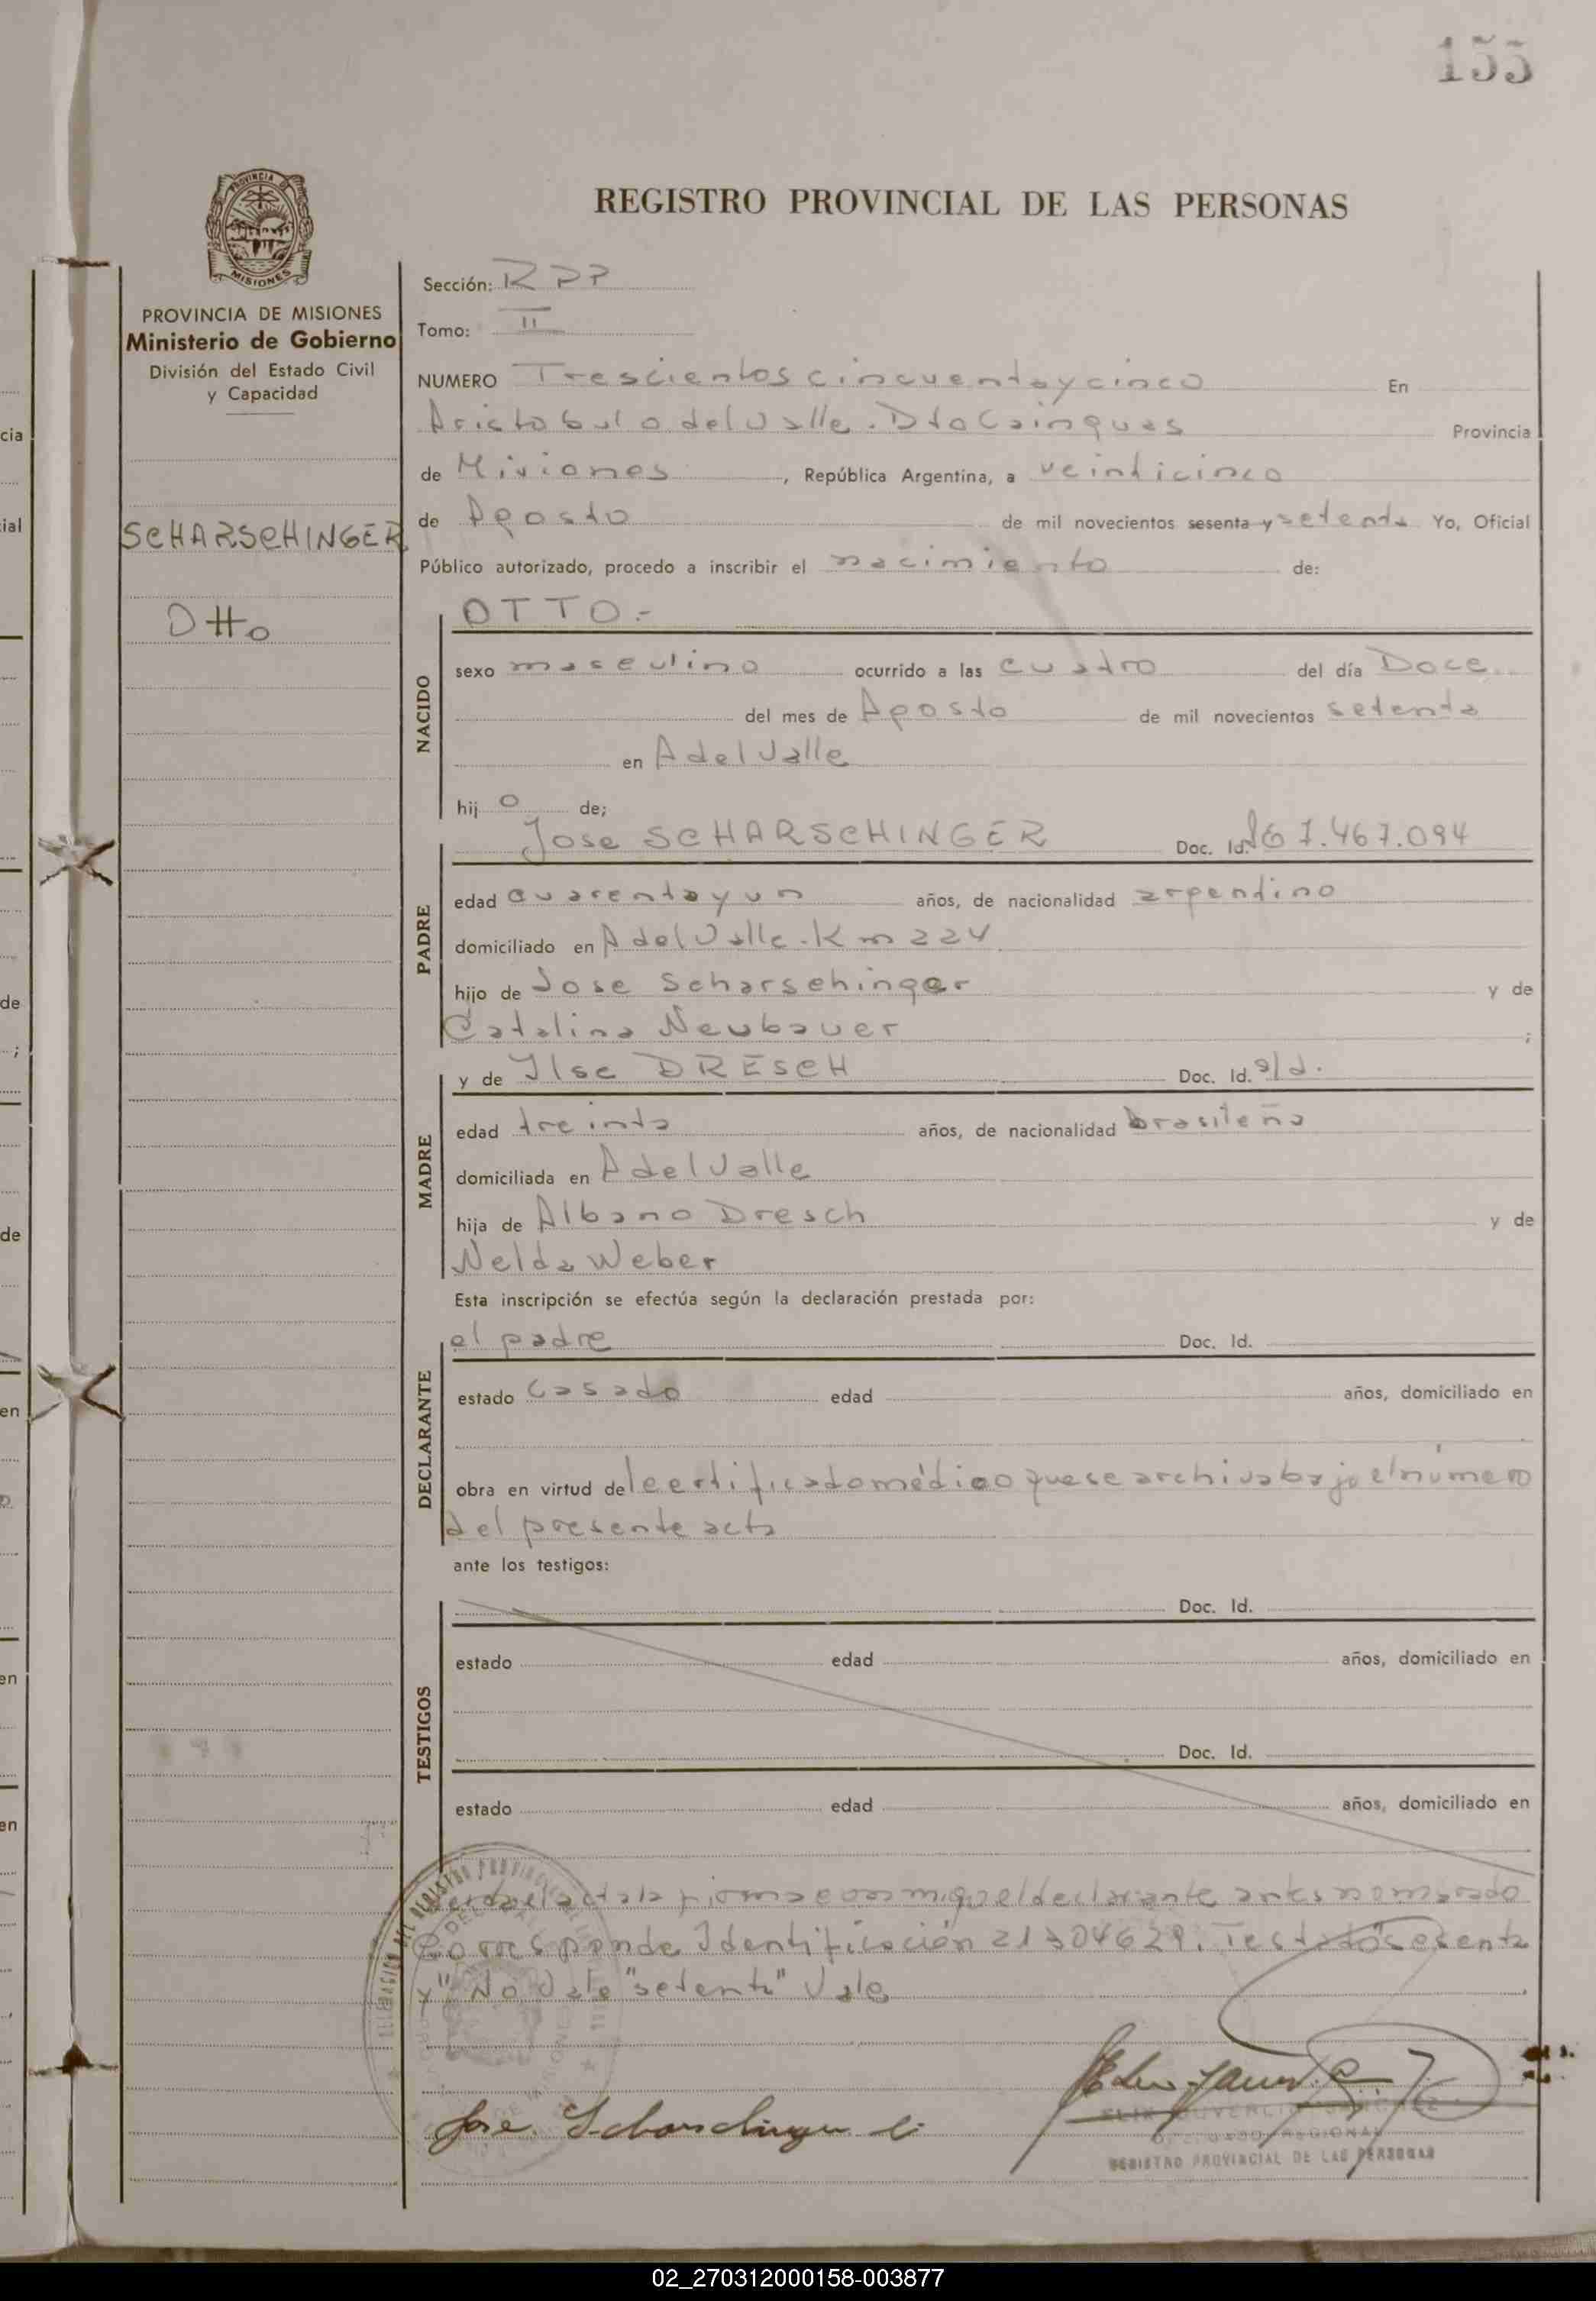 155
PROVINCIA DE
MISIONES
REGISTRO PROVINCIAL DE LAS PERSONAS
PROVINCIA DE MISIONES
Ministerio de Gobierno
División del Estado Civil
y Capacidad
SCHARSCHINGER
Otto
Sección: RPP
Tomo: II
NUMERO Trescientos cincuenta y cinco En
Aristobulo del Valle. Dto Cainguas Provincia
de Misiones, República Argentina, a veinticinco
de Agosto de mil novecientos sesenta y setenta Yo, Oficial
Público autorizado, procedo a inscribir el nacimiento de:
NACIDO
OTTO.-
sexo masculino ocurrido a las cuatro del día Doce
del mes de Agosto de mil novecientos setenta
en A del Valle
hij o de;
PADRE
Jose SCHARSCHINGER Doc. Id. 7.467.094
edad cuarenta y un años, de nacionalidad argentino
domiciliado en A del Valle. Km 224
hijo de Jose Scharschinger y de
Catalina Neubauer ;
MADRE
y de Ilse DRESCH Doc. Id. s/d.
edad treinta años, de nacionalidad brasileña
domiciliada en A del Valle
hija de Albano Dresch y de
Nelda Weber
Esta inscripción se efectúa según la declaración prestada por:
DECLARANTE
el padre Doc. Id.
estado casado edad años, domiciliado en
obra en virtud del certificado médico que se archiva bajo el número
del presente acta
ante los testigos:
TESTIGOS
Doc. Id.
estado edad años, domiciliado en
Doc. Id.
estado edad años, domiciliado en
Leida el acta la firma con migo el declarante antes nombrado
Corresponde Identificación 21304629. Testado "sesenta
y" No Vale "setenta" Vale
Jose Scharschinger
DELEGADO REGIONAL
REGISTRO PROVINCIAL DE LAS PERSONAS
cia
ial
de
;
de
en
en
en
02_270312000158-003877